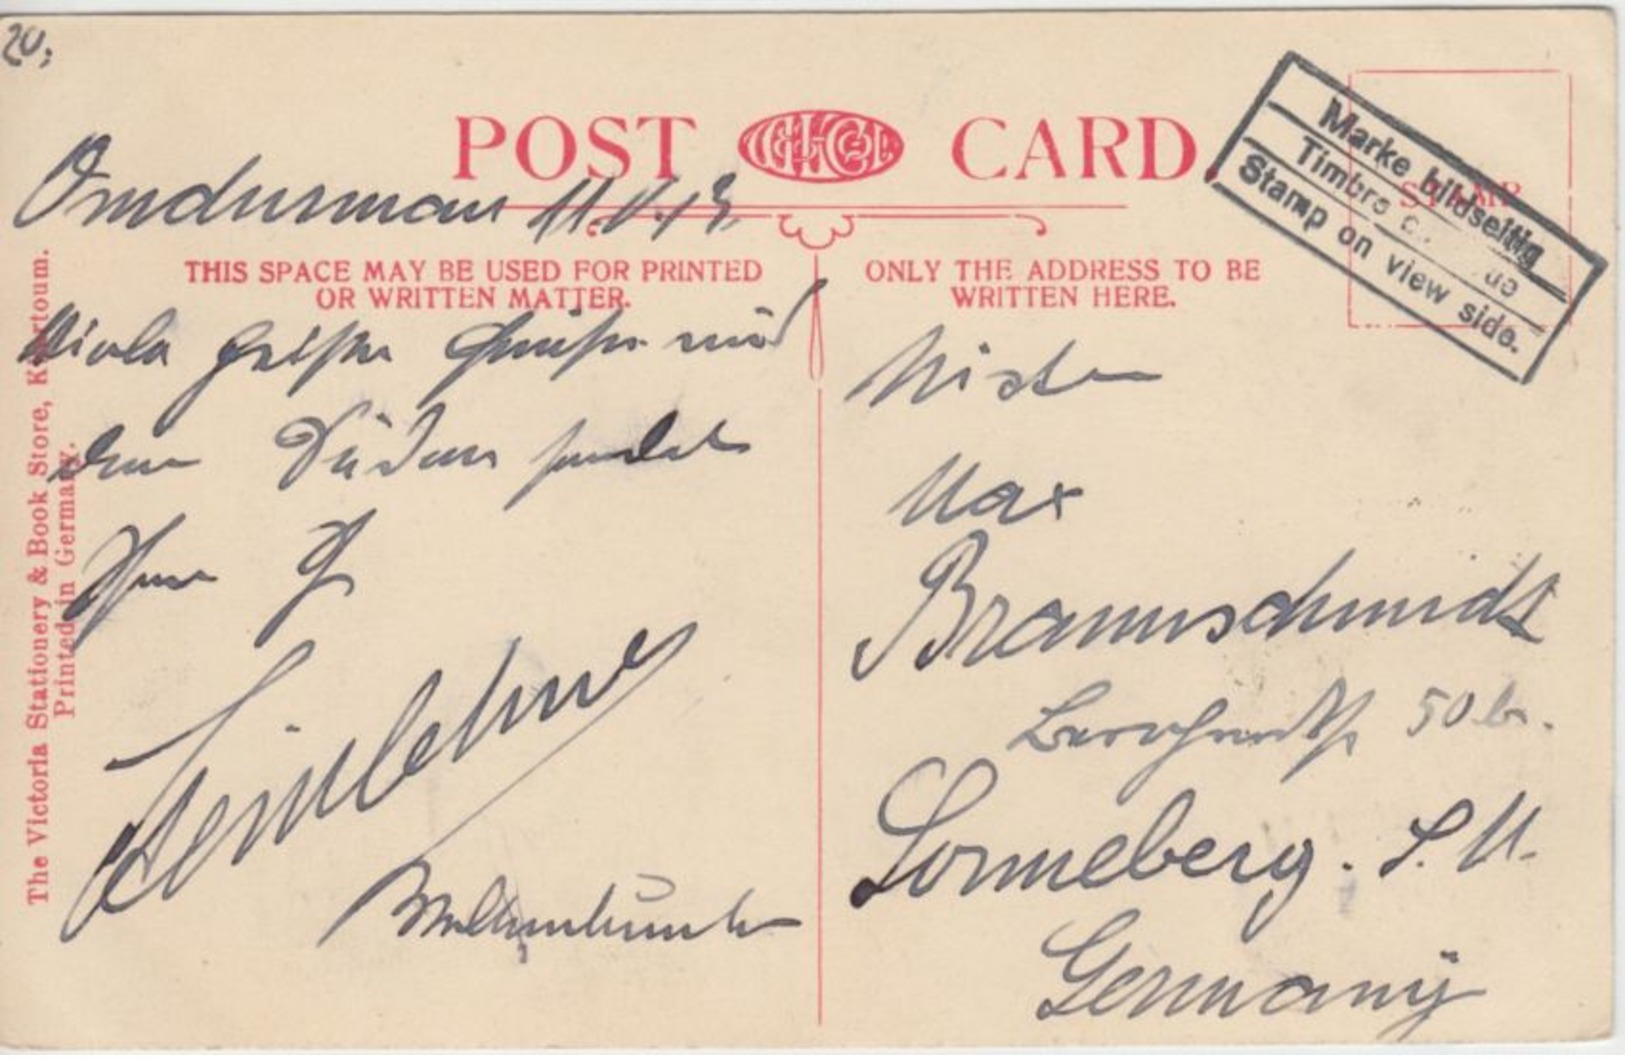 20,
POST CARD
Omdurman 11.V.13
THIS SPACE MAY BE USED FOR PRINTED
OR WRITTEN MATTER.
ONLY THE ADDRESS TO BE
WRITTEN HERE.
STAMP
Marke bildseitig
Timbre
Stamp on view side.
Viele heiße Grüße aus
dem Süden sendet
Ihnen
Mister
Max
Braunschmidt
50
Sonneberg. S. M.
Germany
The Victoria Stationery & Book Store, Khartoum.
Printed in Germany.